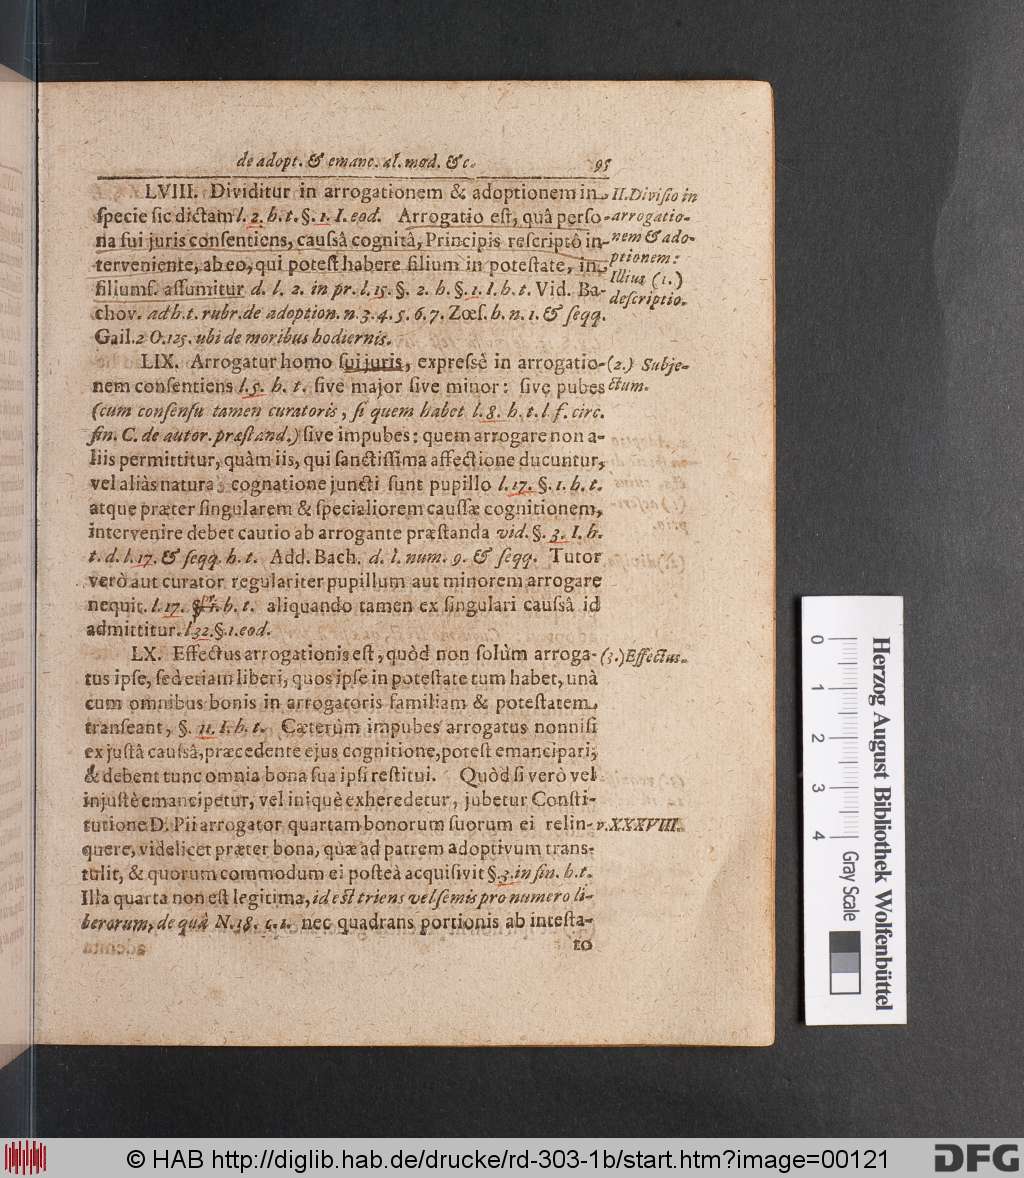 de adopt. & emanc. al. mod. &c. 95
LVIII. Dividitur in arrogationem & adoptionem in
specie sic dictam l. 2. h. t. §. 1. I. eod. Arrogatio est, quâ perso-
na sui juris consentiens, caussâ cognitâ, Principis rescriptô in-
terveniente, ab eo, qui potest habere filium in potestate, in
filiumf. assumitur d. l. 2. in pr. l. 15. §. 2. h. §. 1. I. h. t. Vid. Ba-
chov. ad h. t. rubr. de adoption. n. 3. 4. 5. 6. 7. Zœs. h. n. 1. & seqq.
Gail. 2 O. 125. ubi de moribus hodiernis.
II. Divisio in
arrogatio-
nem & ado-
ptionem:
Illius (1.)
descriptio.
LIX. Arrogatur homo sui juris, expressè in arrogatio-
nem consentiens l. 5. h. t. sive major sive minor: sive pubes
(cum consensu tamen curatoris, si quem habet l. 8. h. t. l f. circ.
fin. C. de autor. præstand.) sive impubes: quem arrogare non a-
liis permittitur, quàm iis, qui sanctissima affectione ducuntur,
vel aliàs natura, cognatione juncti sunt pupillo l. 17. §. 1. h. t.
atque præter singularem & specialiorem caussæ cognitionem,
intervenire debet cautio ab arrogante præstanda vid. §. 3. I. h.
t. d. l. 17. & seqq. h. t. Add. Bach. d. l. num. 9. & seqq. Tutor
verò aut curator regulariter pupillum aut minorem arrogare
nequit. l. 17. h. t. aliquando tamen ex singulari caussâ id
admittitur. l 32. §. 1. eod.
(2.) Subje-
ctum.
LX. Effectus arrogationis est, quòd non solùm arroga-
tus ipse, sed etiam liberi, quos ipse in potestate tum habet, unà
cum omnibus bonis in arrogatoris familiam & potestatem
transeant, §. 11. I. h. t. Cæterùm impubes arrogatus nonnisi
ex justâ caussâ, præcedente ejus cognitione, potest emancipari,
& debent tunc omnia bona sua ipsi restitui. Quòd si verò vel
injustè emancipetur, vel iniquè exheredetur, jubetur Consti-
tutione D. Pii arrogator quartam bonorum suorum ei relin-
quere, videlicet præter bona, quæ ad patrem adoptivum trans-
tulit, & quorum commodum ei posteà acquisivit §. 3. in fin. h. t.
Illa quarta non est legitima, id est triens vel semis pro numero li-
berorum, de quâ N. 18. c. 1. nec quadrans portionis ab intesta-
to
(3.) Effectus.
v. XXXVIII.
0 1 2 3 4
Herzog August Bibliothek Wolfenbüttel
Gray Scale
© HAB http://diglib.hab.de/drucke/rd-303-1b/start.htm?image=00121
DFG